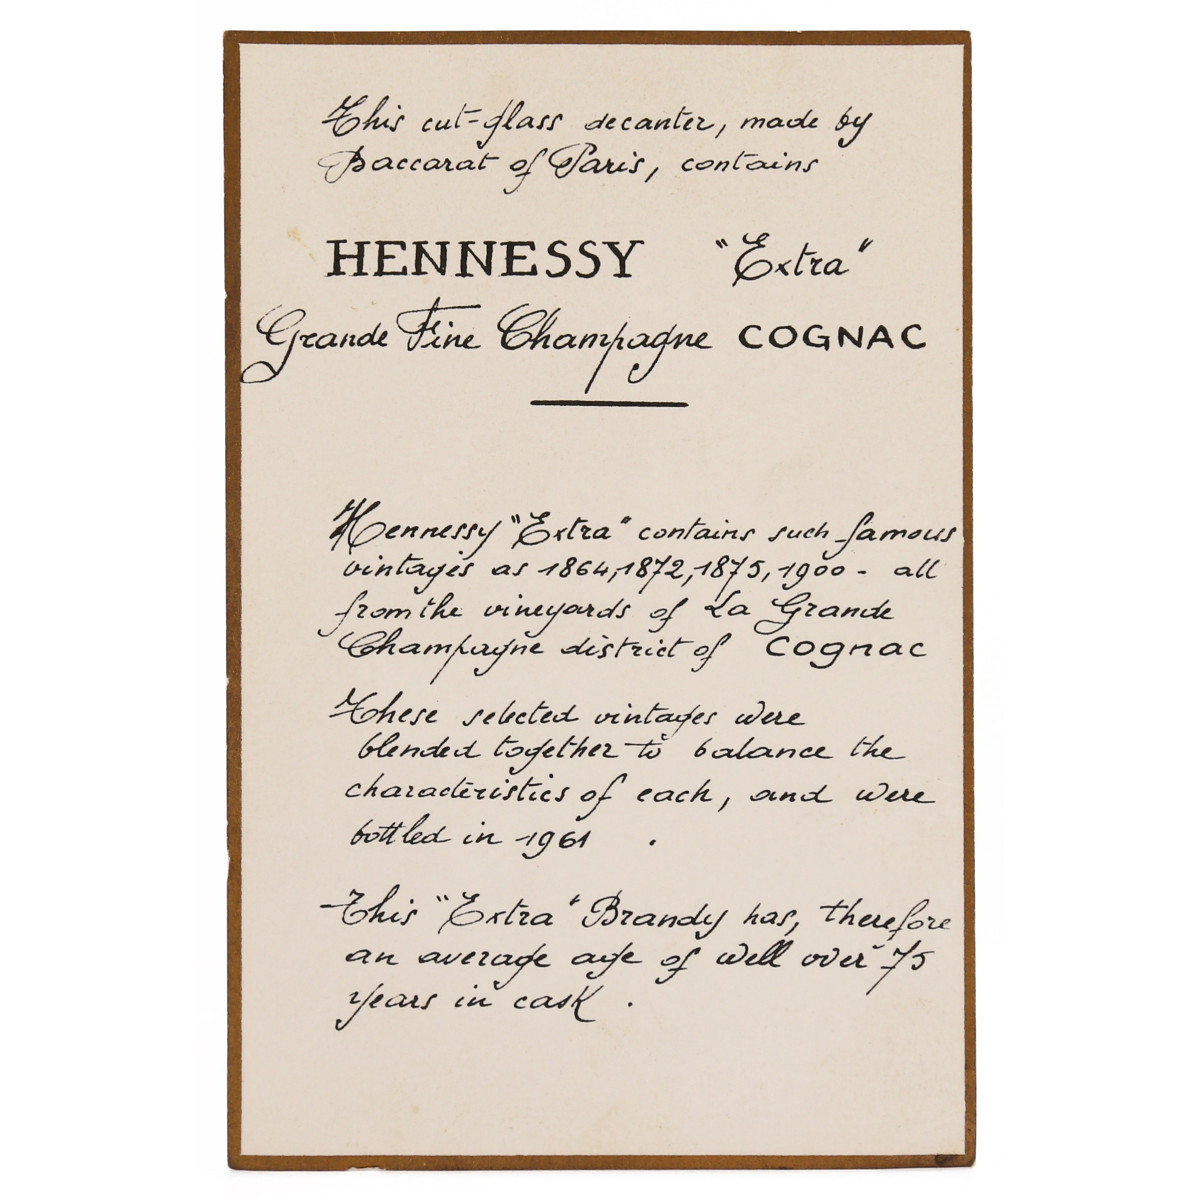 This cut-glass decanter, made by
Baccarat of Paris, contains
HENNESSY "Extra"
Grande Fine Champagne COGNAC
Hennessy "Extra" contains such famous
vintages as 1864, 1872, 1875, 1900 - all
from the vineyards of La Grande
Champagne district of Cognac
These selected vintages were
blended together to balance the
characteristics of each, and were
bottled in 1961 .
This "Extra" Brandy has, therefore
an average age of well over 75
years in cask .